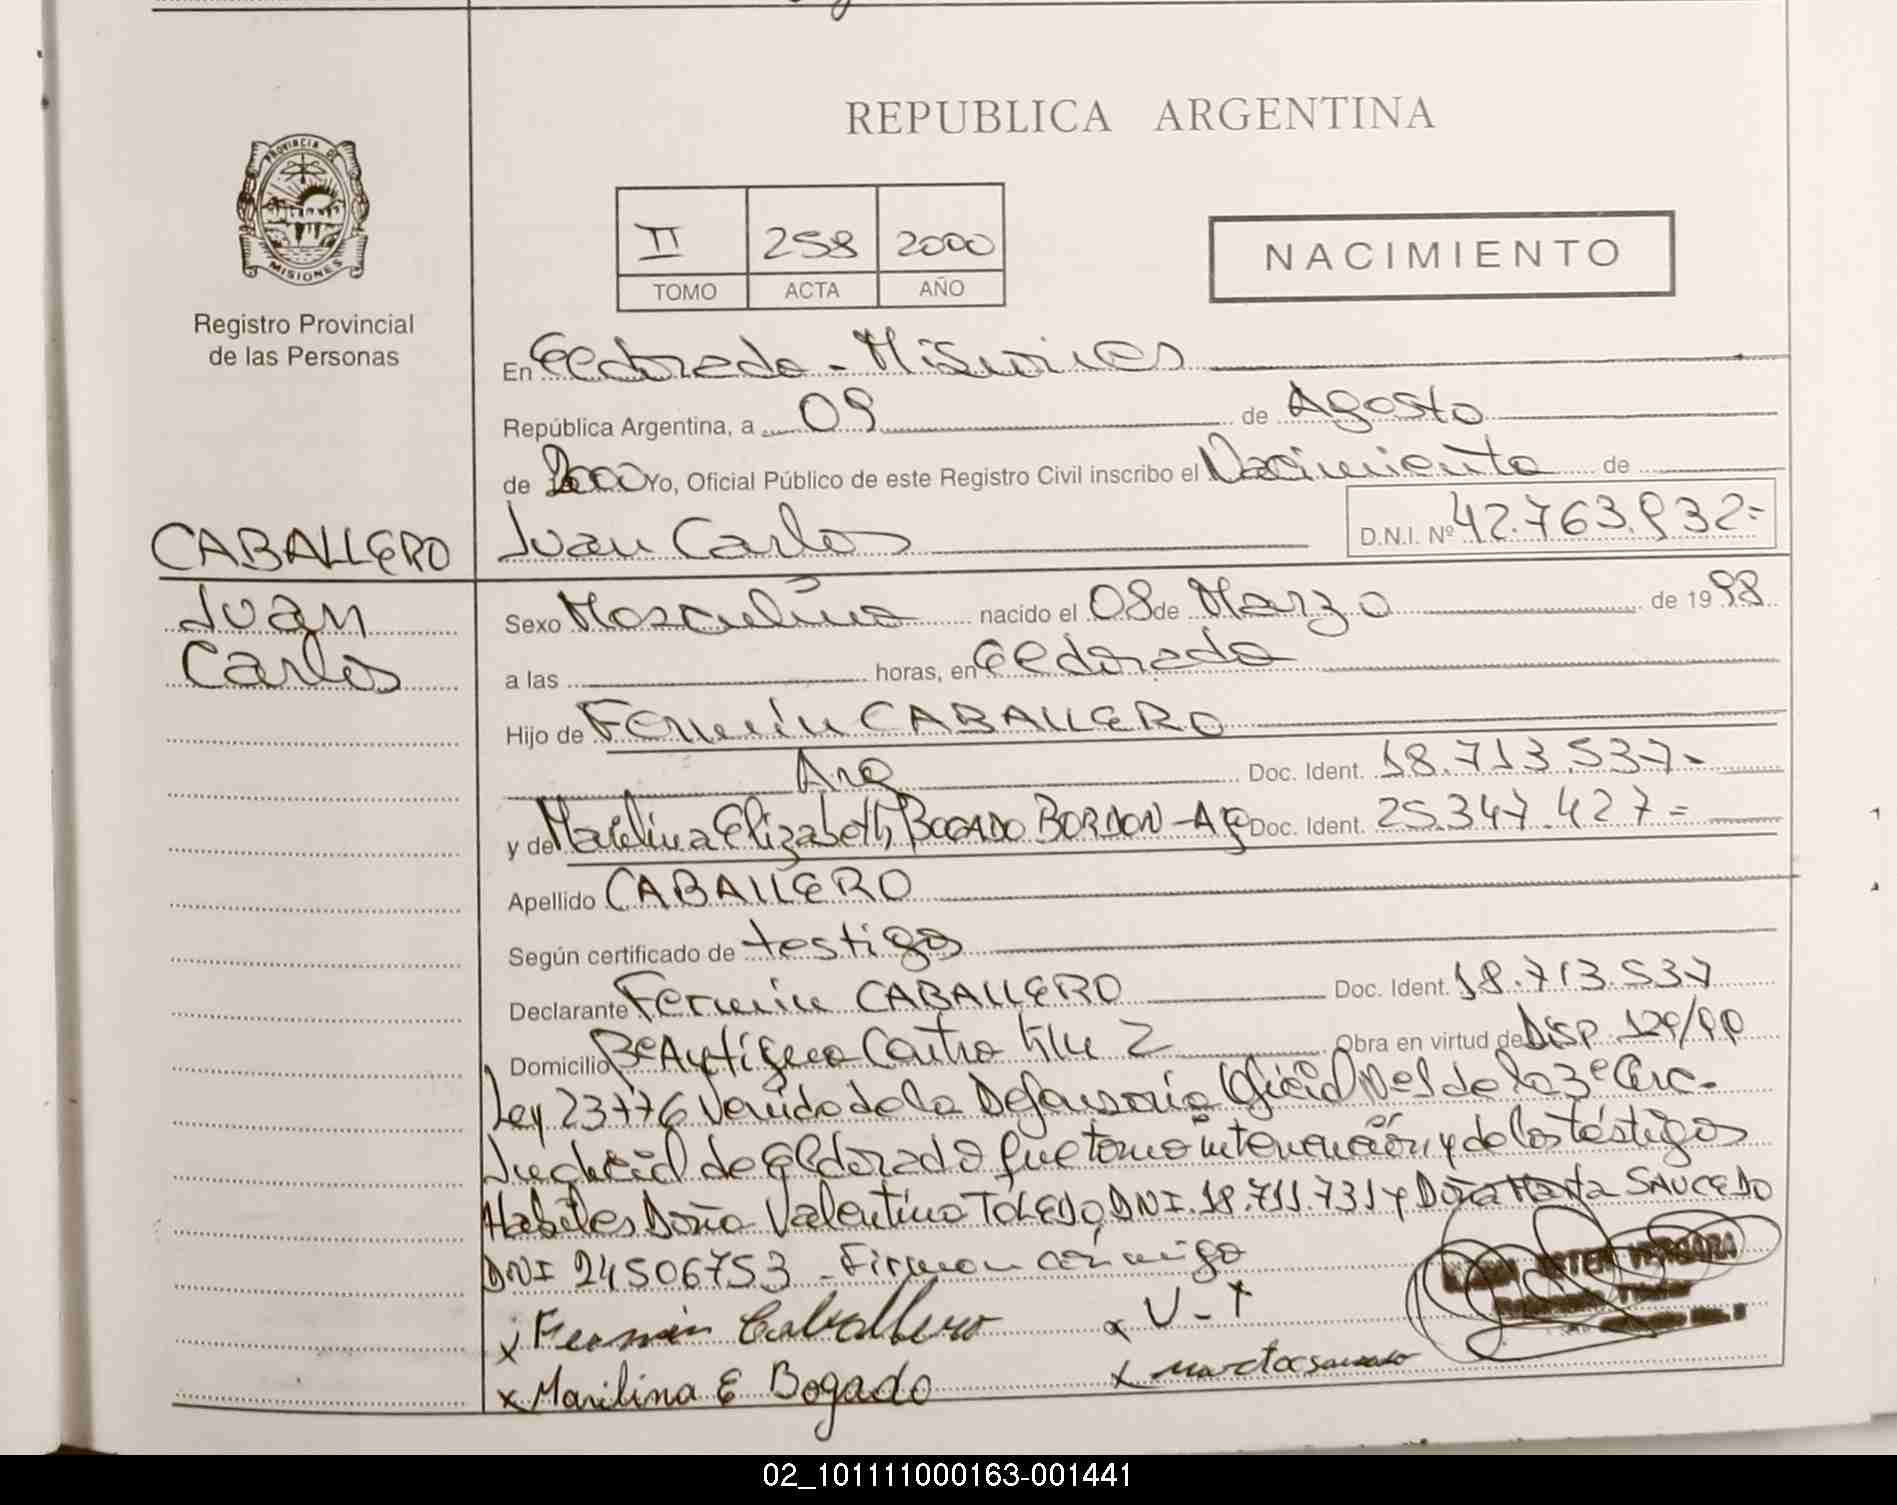 REPUBLICA ARGENTINA
PROVINCIA DE
MISIONES
Registro Provincial
de las Personas
II 258 2000
TOMO ACTA AÑO
NACIMIENTO
En Eldorado - Misiones
República Argentina, a 09 de Agosto
de 2000 Yo, Oficial Público de este Registro Civil inscribo el Nacimiento de
CABALLERO
Juan Carlos
D.N.I. Nº 42.763.932=
Juan
Carlos
Sexo Masculino nacido el 08 de Marzo de 1998
a las horas, en Eldorado
Hijo de Fermin CABALLERO
Arg Doc. Ident. 18.713.537-
y de Marilina Elizabeth BOGADO BORDON - Arg Doc. Ident. 25.347.427=
Apellido CABALLERO
Según certificado de testigos
Declarante Fermin CABALLERO Doc. Ident. 18.713.537
Domicilio Bº Centro Km 2 Obra en virtud de Disp 129/99
Ley 23776 de la Defensoria Oficial Nº 1 de la 3º Circ-
Judicial de Eldorado que tomo intervención y de los téstigos
Habiles Doña Valentina TOLEDO, DNI. 18.711.731 y Doña Marta SAUCEDO
DNI 24506753 - Firman conmigo
VERGARA
x Fermin Caballero x V-T
x Marilina E Bogado x marta saucedo
02_101111000163-001441